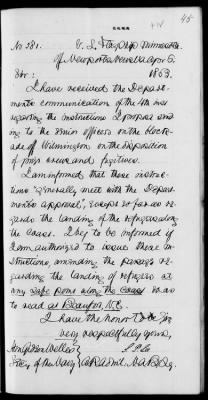 45
No 281. U. S. Flag Ship Minnesota
off Newport News Va Apr 6.
Sir: 1863.
I have received the Depart-
ment's communication of the 4th inst
regarding the instructions I propose send-
ing to the senior officers on the block-
ade of Wilmington on the disposition
of prize crews and fugitives.
I am informed that these instruc-
tions "generally meet with the Depart-
ment's approval", except so far as re-
gards the landing of the refugees along
the coast. I beg to be informed if
I am authorized to issue these in-
structions, amending the passage re-
garding the landing of refugees at
any safe point along the coast so as
to read at Beaufort, N.C.
I have the honor to be, Sir,
very respectfully yours,
Hon Gideon Welles S. P. Lee
Sec'y of the Navy A R Admi'l. N. A. B. Sq.